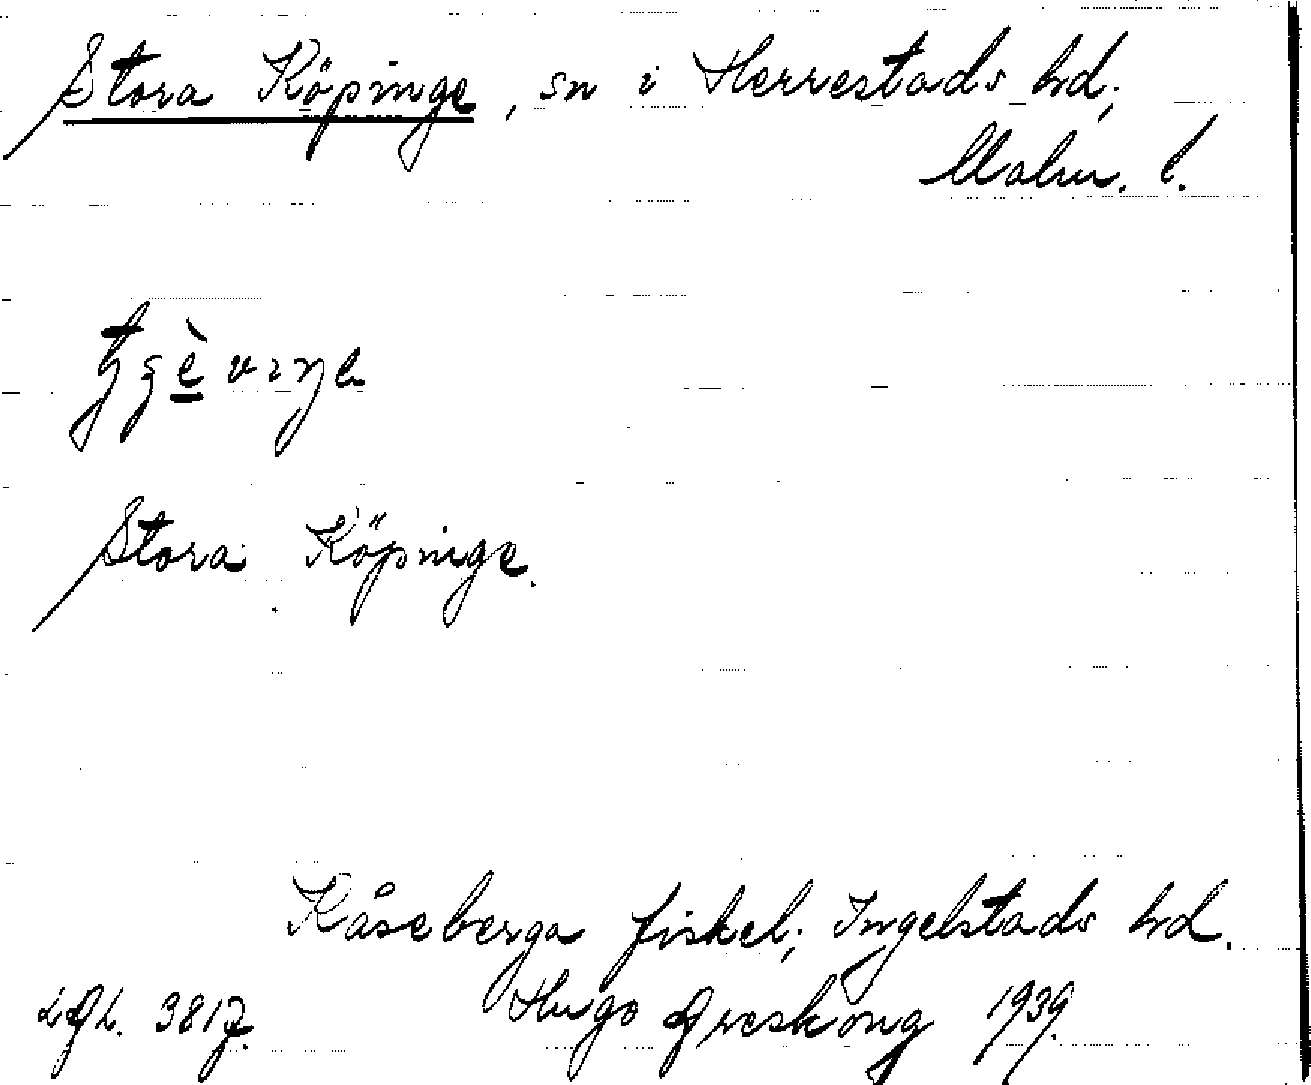 Stora Köpinge, sn i Herrestads hd,
Malm. l.
Stora Köpinge.
Kåseberga fiskel; Ingelstads hd.
Hugo Areskoug 1939.